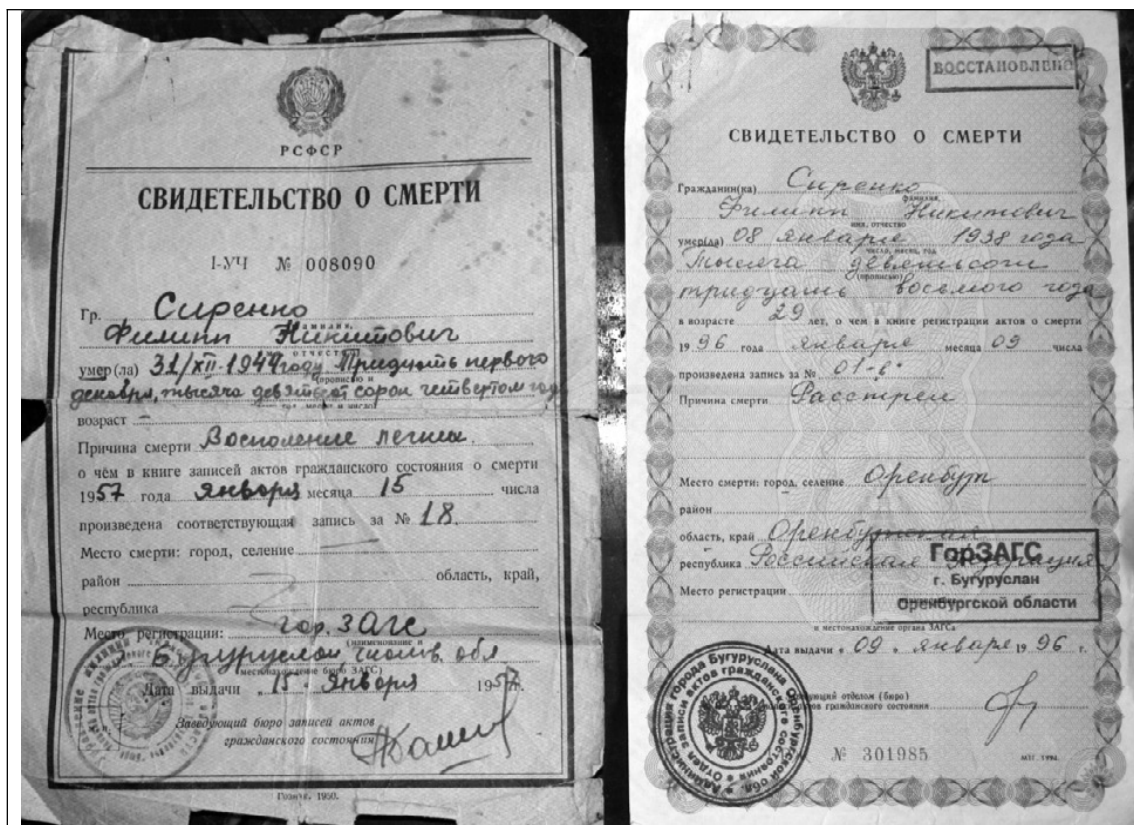 РСФСР
СВИДЕТЕЛЬСТВО О СМЕРТИ
I-УЧ № 008090
Гр. Сиренко
фамилия,
Филипп Никитович
отчество
умер(ла) 31/XII-1944 году Тридцать первого
(прописью и
декабря, тысяча девятьсот сорок четвертом год
год, месяц и число)
возраст —
Причина смерти Восполение легких.
о чём в книге записей актов гражданского состояния о смерти
1957 года Января месяца 15 числа
произведена соответствующая запись за № 18.
Место смерти: город, селение
район область, край,
республика
Место регистрации: гор. ЗАГС
(наименование и
Бугуруслан, обл
местонахождение бюро ЗАГС)
Дата выдачи „15" Января 1957г.
Заведующий бюро записей актов
гражданского состояния
Гознак. 1950.
ВОССТАНОВЛЕНО
СВИДЕТЕЛЬСТВО О СМЕРТИ
Гражданин(ка) Сиренко
фамилия,
Филипп Никитович
имя, отчество
умер(ла) 08 января 1938 года
число, месяц, год
тысяча девятьсот
(прописью)
тридцать восьмого года
в возрасте 29 лет, о чем в книге регистрации актов о смерти
1996 года января месяца 09 числа
произведена запись за № 01-в
Причина смерти Расстрел
Место смерти: город, селение Оренбург
район
область, край Оренбургская
республика Российская Федерация
Место регистрации
ГорЗАГС
г. Бугуруслан
Оренбургской области
и местонахождение органа ЗАГСа
Дата выдачи « 09 » января 1996 г.
Заведующий отделом (бюро)
записи актов гражданского состояния
Администрация города Бугуруслана Оренбургской обл.
Отдел записи актов гражданского состояния
№ 301985
МТГ. 1994.